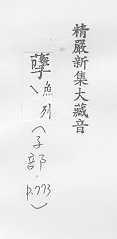 精嚴新集大藏音
孽 魚列(子部、p.773)